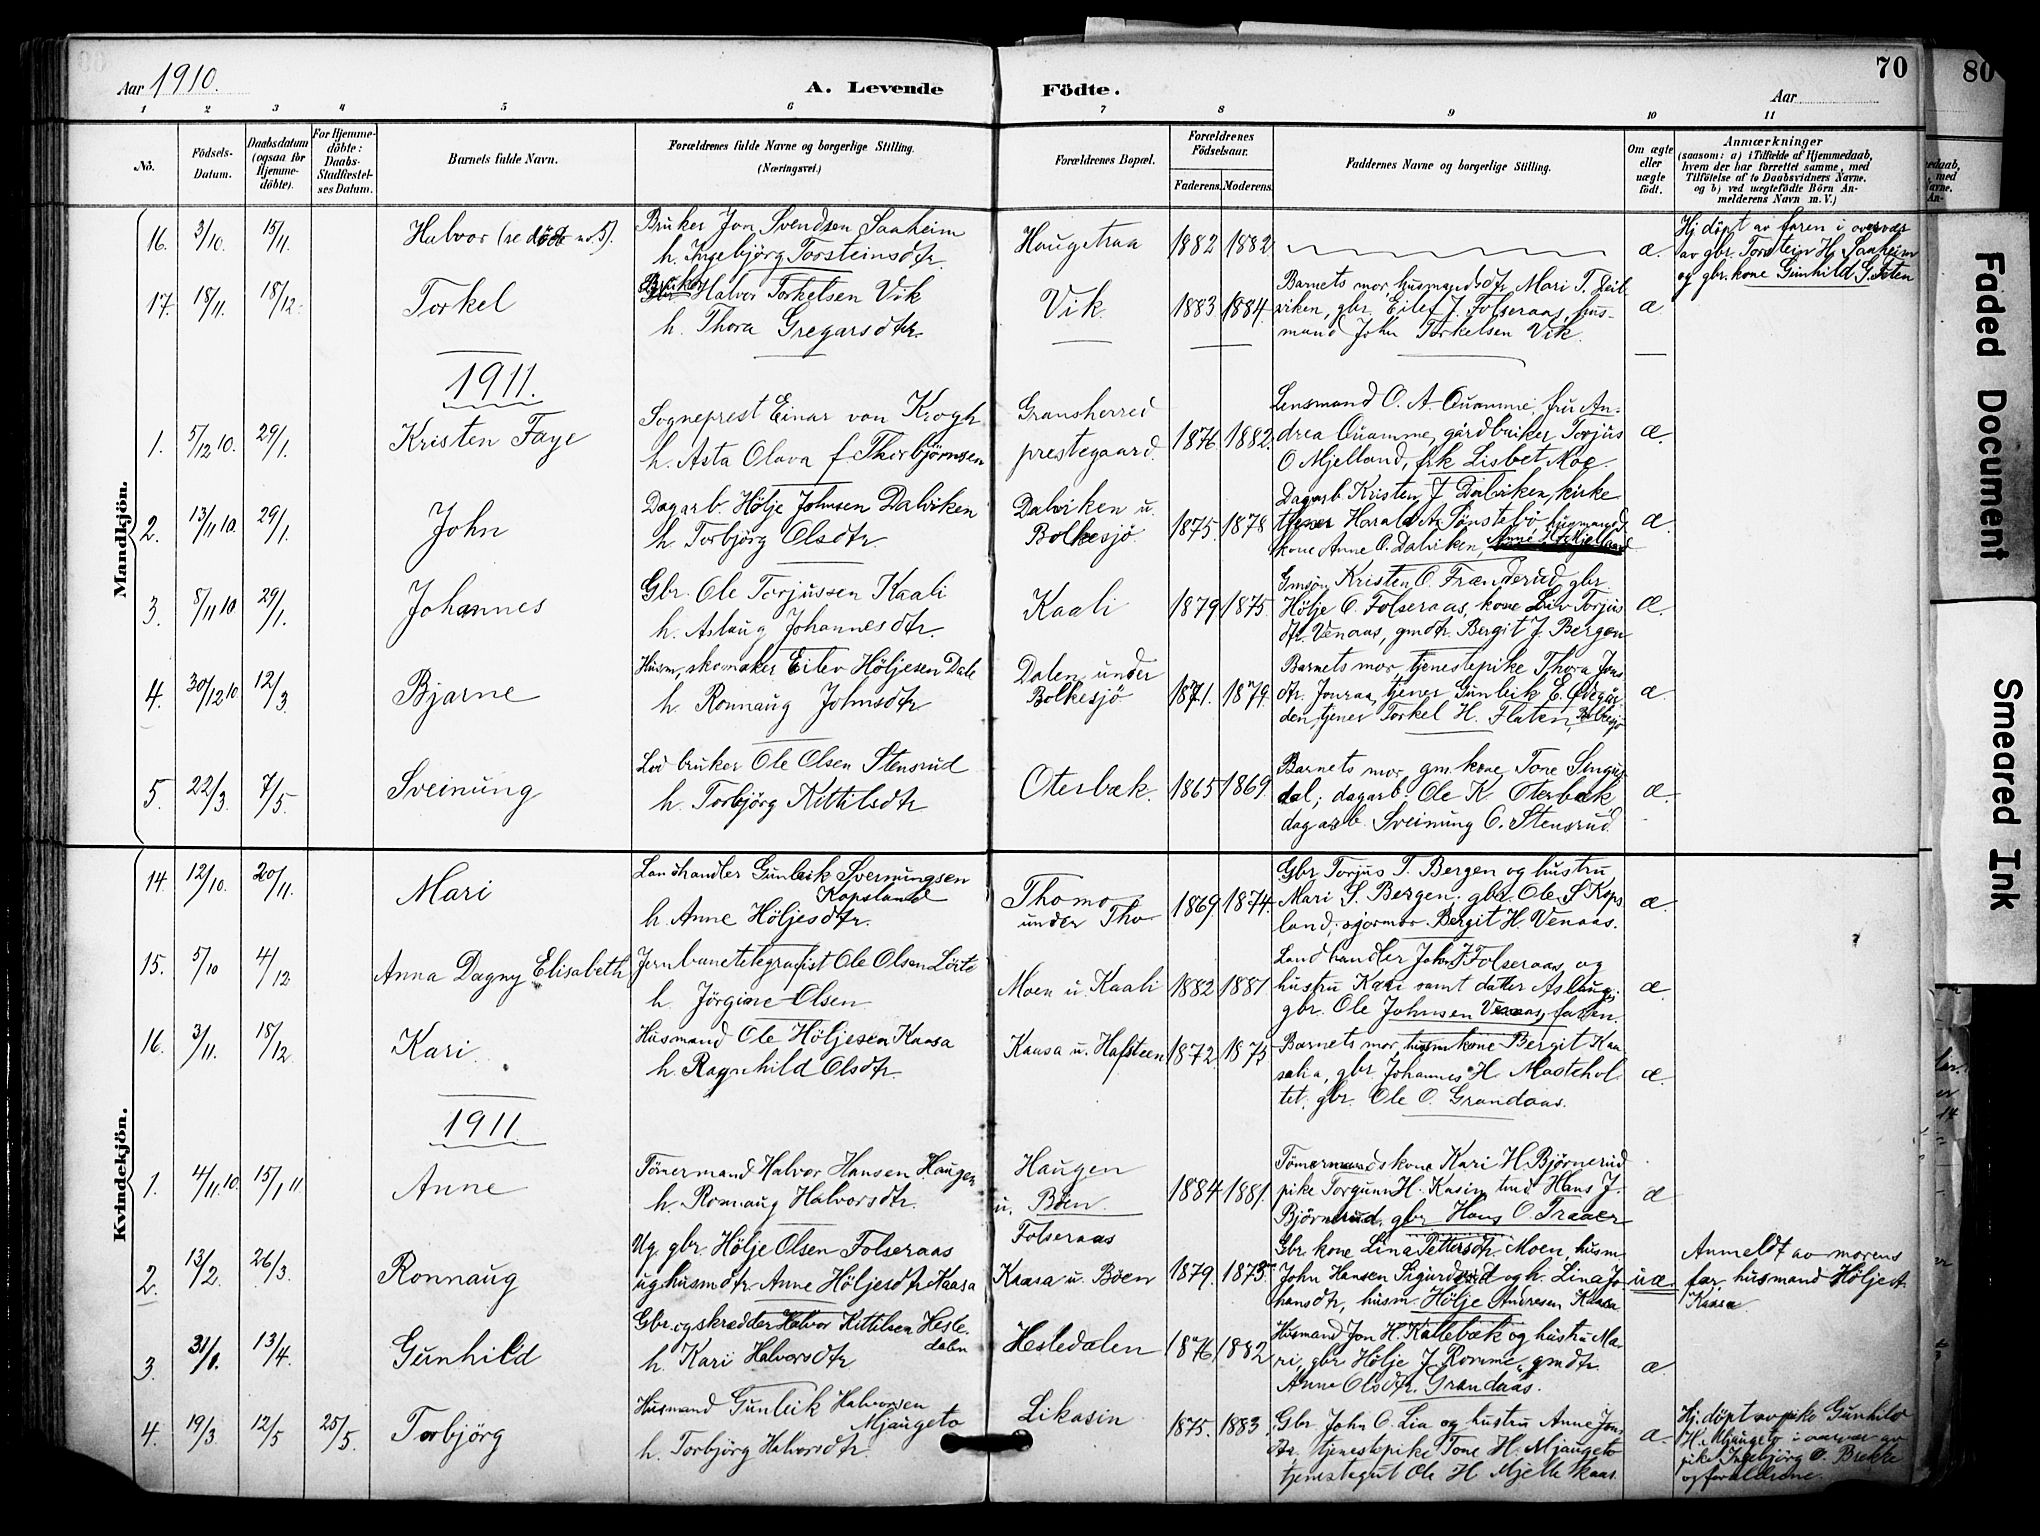 Aar 1910.
A. Levende Födte.
70
80
Aar
1 2 3 4 5 6 7 8 9 10 11
No.
Födsels-Datum.
Daabsdatum (ogsaa for Hjemmedöbte).
For Hjemmedöbte: Daabs-Stadfæstelses Datum.
Barnets fulde Navn.
Forældrenes fulde Navne og borgerlige Stilling. (Næringsvei.)
Forældrenes Bopæl.
Forældrenes Födselsaar.
Faderens. Moderens.
Faddernes Navne og borgerlige Stilling.
Om ægte eller uægte födt.
Anmærkninger
(saasom: a) i Tilfælde af Hjemmedaab, hvem der har forrettet samme, med Tilföielse af to Daabsvidners Navne, og b) ved uægtefödte Börn Anmelderens Navn m. V.)
Mandkjön.
16. 3/10. 15/11. Halvor (se döde no. 5).
Bruker Jon Svendsen Saaheim
h. Ingebjörg Torsteinsdtr.
Haugstraa 1882 1882 æ.
Hj. döpt av faren i overvær
av gbr. Torstein H. Saaheim
og gbr. kone Gunhild G.
17. 18/11. 18/12. Torkel
Bruker Halvor Torkelsen Vik
h. Thora Gregarsdtr.
Vik. 1883 1884.
Barnets mor, husmandsdtr Mari T.
gbr. Eilef J. Folseraas, hus-
mand John Torkelsen Vik.
æ.
1911.
1. 5/12 10. 29/1. Kristen Faye
Sogneprest Einar von Krogh
h. Asta Olava f. Thorbjörnsen
Gransherred
prestegaard. 1876. 1882.
Lensmand O. A. Quamme, fru An-
drea Quamme, gårdbruker Torjus
O Mjelland, frk Lisbet Moe.
æ.
2. 13/11 10. 29/1. John
Dagarb. Hölje Johnsen Dalviken
h. Torbjörg Olsdtr.
Dalviken u.
Bolkesjö 1875. 1878
Dagarb Kristen J Dalviken, kirke
tjener Harald A. Sönstebö, husmands
kone Anne O. Dalviken,
æ
3. 8/11 10 29/1. Johannes
Gbr. Ole Torjussen Kaali
h. Aslaug Johannesdtr.
Kaali 1879 1875.
Gmsön Kristen O. Frænderud, gbr
Hölje O. Folseraas, kone Liv Torjus
dtr. Venaas, gmdtr. Bergit J. Bergen
æ.
4. 30/12 10 12/3. Bjarne
Husm, skomaker Eilev Höljesen Dale
h. Ronnaug Johnsdtr
Dalen under
Bolkesjö 1871. 1879.
Barnets mor, tjenestepike Thora Jons
dtr. Jonraa, tjener Gunleik E.
den, tjener Torkel H. Flaten, Bolkesjö
æ
5. 22/3. 7/5. Sveinung
Lodbruker Ole Olsen Stensrud
h. Torbjörg Kittilsdtr
Oterbæk. 1865 1869
Barnets mor, gm. kone Tone
dal; dagarb. Ole K. Oterbæk,
dagarb. Sveinung O. Stensrud.
æ.
Kvindekjön.
14. 12/10. 20/11. Mari
Landhandler Gunleik Sveinungsen
Kopsland
h. Anne Höljesdtr.
Thomo
under Tho 1869 1874.
Gbr Torjus T. Bergen og hustru
Mari S. Bergen, gbr. Ole S. Kops
land, Bergit H. Venaas.
æ.
15. 5/10 4/12 Anna Dagny Elisabeth
Jernbanetelegrafist Ole Olsen Lörte
h Jörgine Olsen
Moen u. Kaali 1882 1881
Landhandler John J Folseraas og
hustru Kari samt datter Aslaug;
gbr. Ole Johnsen Venaas, faren.
æ.
16. 3/11. 18/12. Kari.
Husmand Ole Höljesen Kaasa
h. Ragnhild Olsdtr.
Kaasa u. Hafsteen 1872. 1875
Barnets mor, husm. kone Bergit Kaa
salia, gbr. Johannes H. Mastehol
tet, gbr. Ole O. Grandaas.
æ.
1911
1. 4/11. 10. 15/1 11. Anne
Tömermand Halvor Hansen Haugen
h. Ronnaug Halvorsdtr.
Haugen
u. Böen. 1884 1881
Tömermandskone Kari H. Björnerud
pike Torgunn H. Kasin, tmd Hans J.
Björnerud, gbr Hans O. Traaer
æ
2. 13/2. 26/3. Ronnaug
Ug. gbr. Hölje Olsen Folseraas
ug. husmdtr. Anne Höljesdtr Kaasa
Folseraas
Kaasa u. Böen 1879. 1873.
Gbr. kone Lina Pettersdtr. Moen, husm.
John Hansen Sigurdsrud og h. Lina Jo
hansdtr, husm. Hölje Andresen Kaasa
uæ.
Anmeldt av morens
far husmand Hölje A.
Kaasa.
3 31/1. 13/4. Gunhild
Gbr. og skrædder Halvor Kittilsen Hesle-
dalen
h. Kari Halvorsdtr
Hesledalen 1876 1882
Husmand Jon H. Kallebæk og hustru Ma-
ri, gbr Hölje J. Romme, gmdtr.
Anne Olsdtr. Grandaas.
æ.
4. 19/3. 12/5 25/5. Torbjörg
Husmand Gunleik Halvorsen
Mjaugeto
h. Torbjörg Halvorsdtr.
Likasin 1875. 1883
Gbr. John O. Lia og hustru Anne Jons
dtr. tjenestepike Tone H. Mjaugeto
tjenstegut Ole H Mjelleskaas
æ.
Hj. döpt av pike Gunhild
H. Mjaugeto i overvær av
pike Ingebjörg O. Brekke
og forældrene.
Faded Document
Smeared Ink